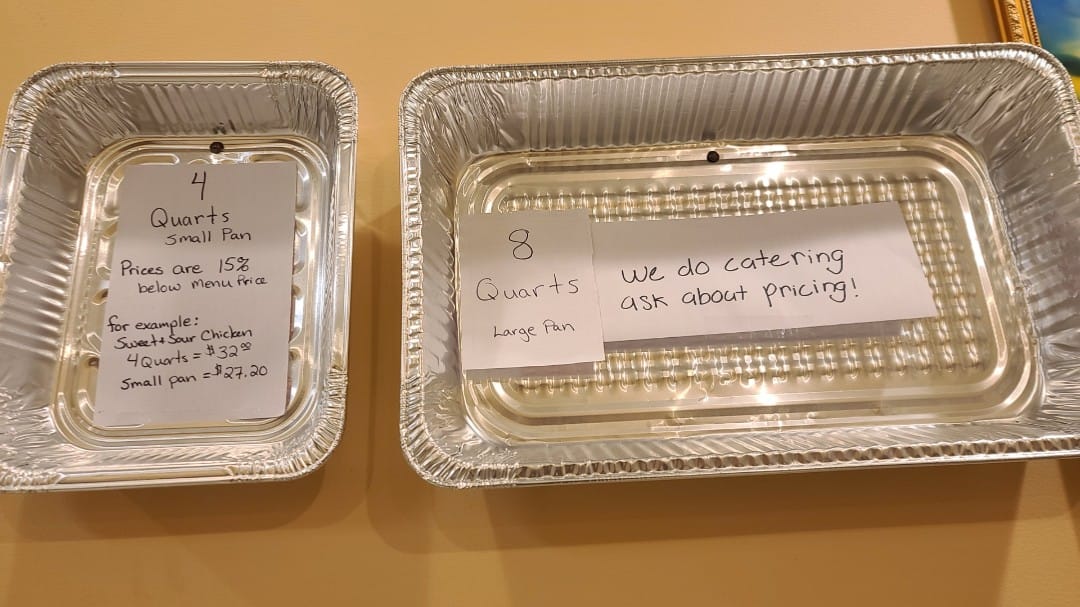 4
Quarts
Small Pan
Prices are 15%
below menu Price
for example:
Sweet + Sour Chicken
4 Quarts = $32.00
Small pan = $27.20
8
Quarts
Large Pan
We do catering
ask about pricing!